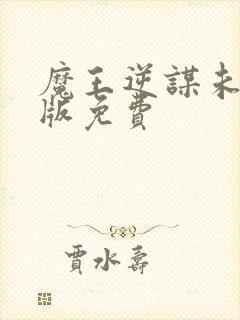 魔王逆謀未
版免費
賈水壽